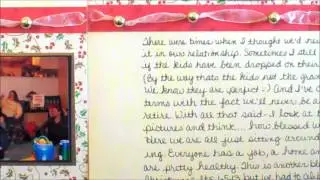 There were times when I thought we'd ne
it in our relationship. Sometimes I still
if the kids have been dropped on their
(By the way thats the kids not the gran
We know they are perfect :) And I've c
terms with the fact we'll never be a
retire. With all that said - I look at t
pictures and think.... how blessed w
here we are all just sitting around
ing. Everyone has a job, a home an
are pretty healthy. This is another bl